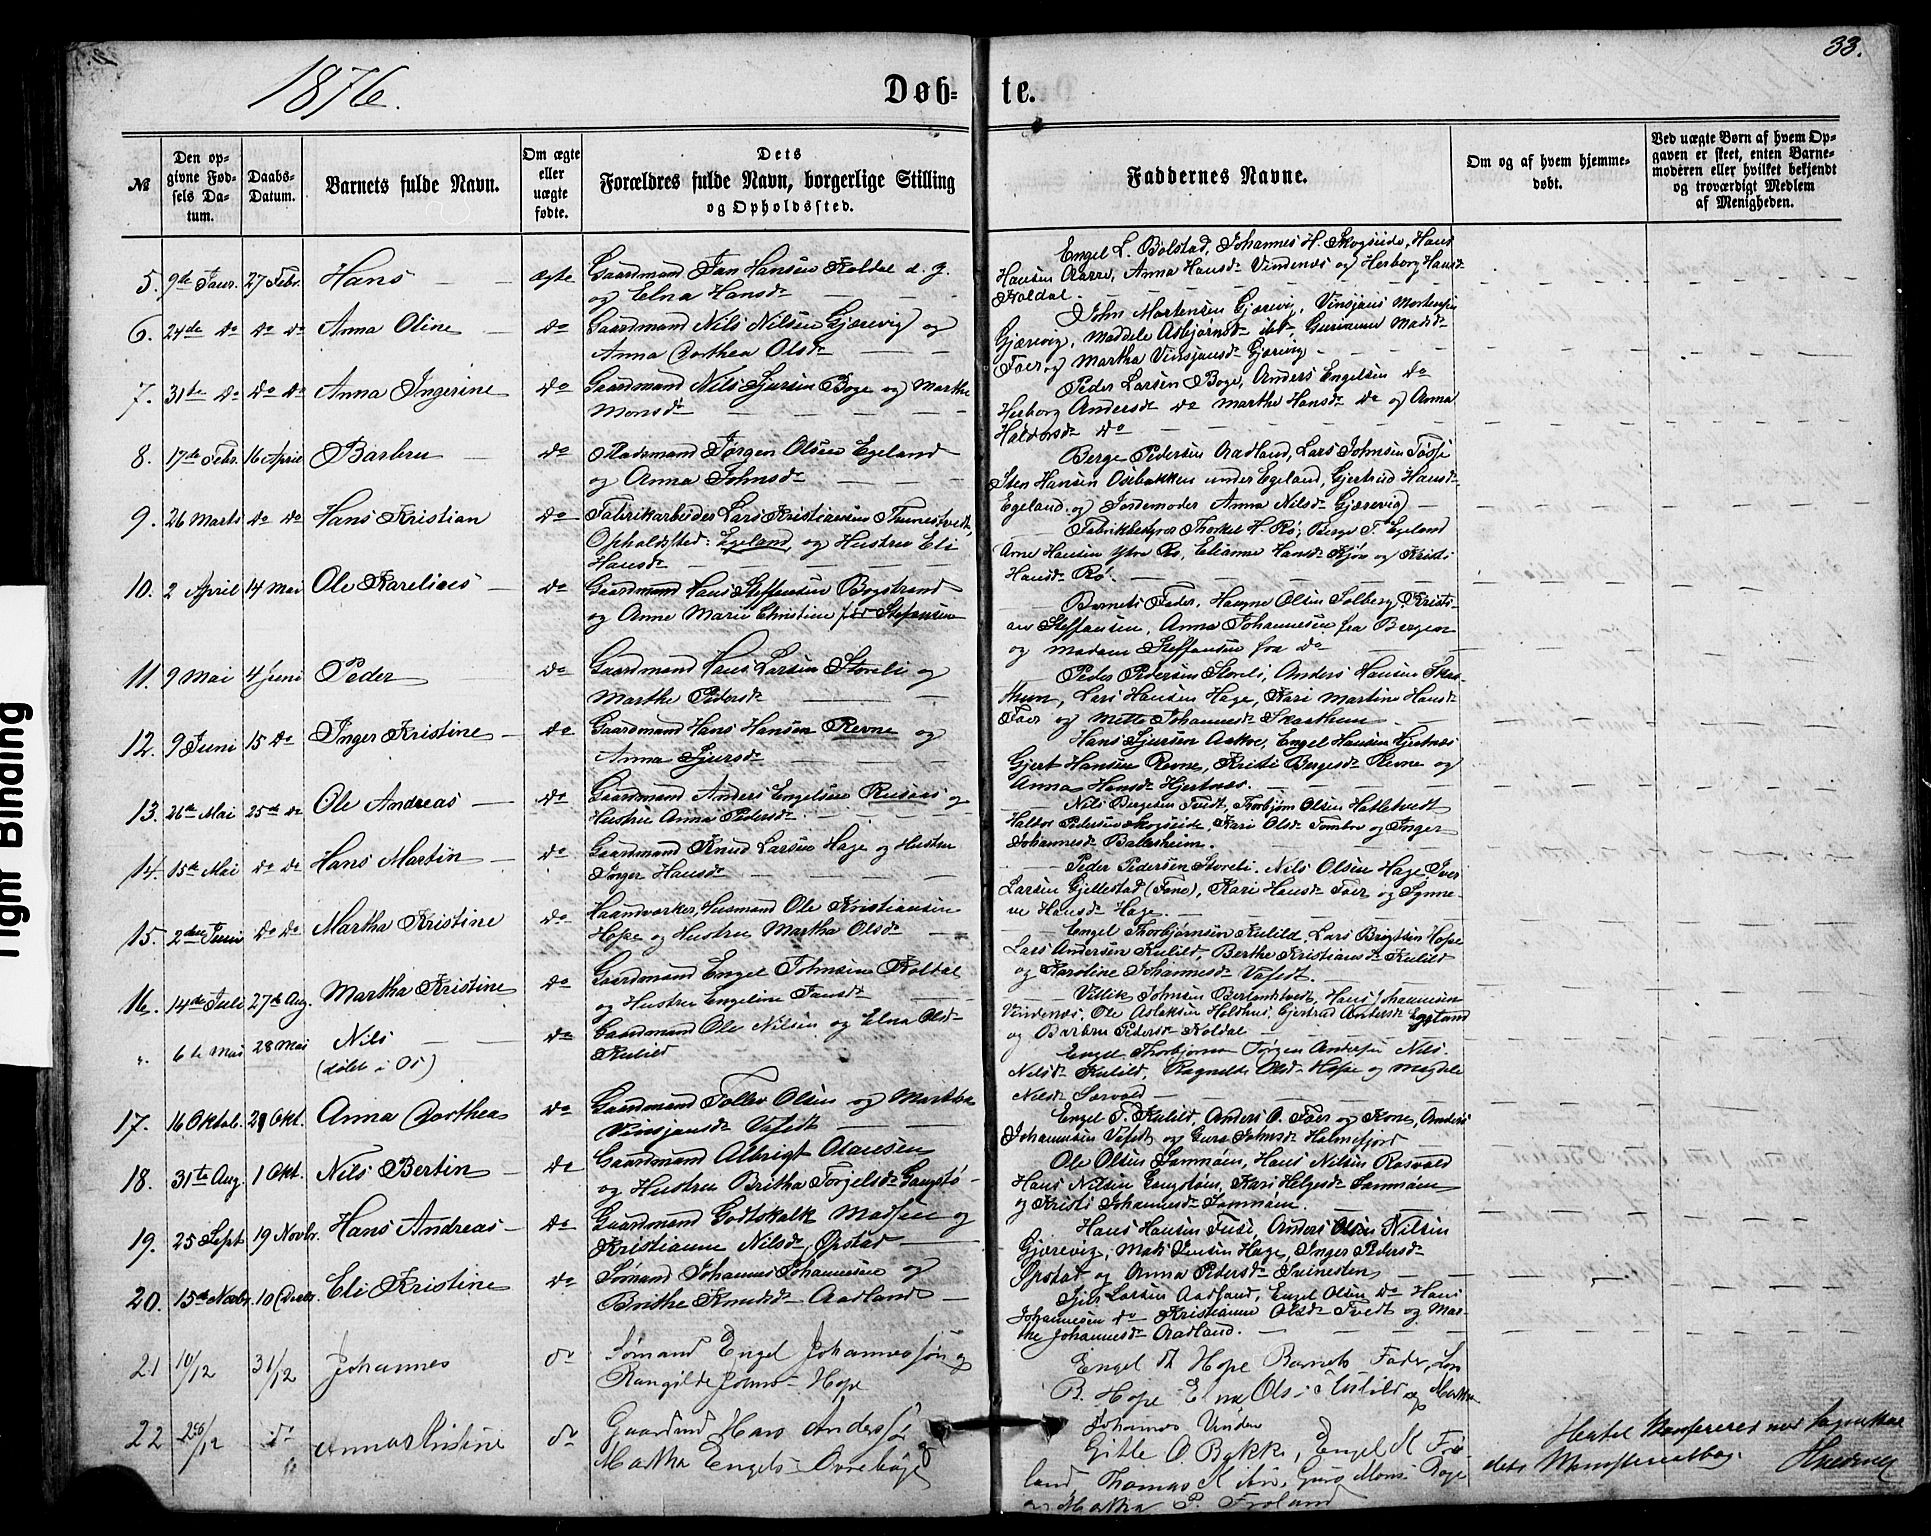 33.
1876.
Døb- te.
№
Den opgivne Fødsels Datum.
Daabs-Datum.
Barnets fulde Navn.
Om ægte eller uægte fødte.
Dets Forældres fulde Navn, borgerlige Stilling og Opholdssted.
Faddernes Navne.
Om og af hvem hjemmedøbt.
Ved uægte Børn af hvem Opgaven er skeet, enten Barnemoderen eller hvilket bekjendt og troværdigt Medlem af Menigheden.
5. 9de Janr. 27 Febr. Hans ægte Gaardmand Jan Hansen Koldal d. y.
og Elna Hansdr
Engel L. Bolstad, Johannes H. Skogseide, Hans
Hansen Aarre, Anna Hansdr Vindenes og Herborg Hansdr
Koldal.
6. 24de do do do Anna Oline do Gaardmand Nils Nilsen Gjærevig og
Anna Dorthea Olsdr
John Mortensen Gjærevig, Vinsjans Mortensen
Gjærevig, Maddele Asbjørnsdr ibd., Madsdr
Faer og Martha Vinsjansdr Gjærevig
7. 31te do do do Anna Ingerine do Gaardmand Nils Sjursen Boge og Marthe
Monsdr
Peder Larsen Boge, Anders Engelsen do
Herborg Andersdr do Marthe Hansdr do og Anna
Haldorsdr do
8. 17de Febr. 16 April Barbru do Pladsmand Jørgen Olsen Egeland
og Anna Johnsdr
Berge Pedersen Aadland, Lars Johnsen Tøsse
Sten Hansen Osebakken under Egeland, Gjertrud Hansdr
Egeland og Jordemoder Anna Nilsdr Gjærevig
9. 26 Marts do do Hans Kristian do Fabrikarbeider Lars Kristiansen Tunestvedt,
Opholdssted: Egeland, og Hustru Eli
Hansdr
Fabrikbestyrer Thorkel H. Rø, Berge T. Egeland
Arne Hansen Ytre Rø, Elianne Hansdr Kjøn og Kristi
Hansdr Rø.
10. 2 April 14 Mai Ole Karelius do Gaardmand Hans Steffensen Bogstrand
og Anne Marie Christine f. Stefansen
Barnets Fader, Haagne Olsen Solberg, Kristian
Steffensen, Anna Johannesen fra Bergen
og Madam Steffensen fra do
11. 9 Mai 4 Juni Peder do Gaardmand Hans Larsen Storeli og
Marthe Pedersdr
Peder Pedersen Storeli, Anders Hansen Skaathun,
Lars Hansen Hage, Kari Martine Hansdr
Faer og Mette Johannesdr Skaathun
12. 9 Juni 15 do Inger Kristine do Gaardmand Hans Hansen Revne og
Anna Sjursdr
Hans Sjursen Aakre, Engel Hansen Hjertnæs
Gjert Hansen Revne, Kristi Bergesdr Revne og
Anna Hansdr Hjertnæs.
13. 26de Mai 25de do Ole Andreas do Gaardmand Anders Engelsen Rusaas og
Hustru Anna Pedersdr
Nils Bergesen Tvedt, Thorbjørn Olsen Hatletvedt
Haldor Pedersen Skogseide, Kari Olsdr Tombre og Inger
Johannesdr Baldersheim.
14. 15de Mai do do Hans Martin do Gaardmand Knud Larsen Hage og Hustru
Inger Hansdr
Peder Pedersen Storeli, Nils Olsen Hage, Iver
Larsen Gjellestad (Fane), Kari Hansdr Faer og Synneve
Hansdr Hage.
15. 2den Juni do do Martha Kristine do Haandværker, Husmand Ole Kristiansen
Hope og Hustru Martha Olsdr
Engel Thorbjørnsen Kulild, Lars Brigtsen Hope
Lars Andersen Kulild, Berthe Kristiansdr Kulild
og Karoline Johannesdr Vafedt.
16. 14de Juli 27de Aug. Martha Kristine do Gaardmand Engel Johnsen Koldal
og Hustru Engeline Jansdr
Villik Johnsen Berlandstvedt, Hans Johannesen
Vindenes, Ole Aslaksen Holdhus, Gjertrud Andersdr Egeland
og Barbru Pedersdr Koldal
„ 6te Mai 28 Mai Nils
(døbt i Os) do Gaardmand Ole Nilsen og Elna Olsdr
Kulild
Engel Thorbjørnsen Jørgen Andersen Nils
Nilsdr Kulild, Ragnilde Olsdr Hope og Magdele
Nilsdr Sørvold
17. 16 Oktob. 29 Okt. Anna Dorthea do Gaardmand Tollev Olsen og Martha
Vinsjansdr Vafedt
Engel T. Kulild, Anders O. Faer og Kone, Anders
Johannesen Vafedt og Guro Johnsdr Holmefjord
18. 31te Aug. 1 Okt. Nils Bertin do Gaardmand Albrigt Olausen
og Hustru Britha Torgelsdr Gangstø
Ole Olsen Samnøen, Hans Nilsen Røsvold
Hans Nilsen Engstøen, Kari Helgesdr Samnøen
og Kristi Johannesdr Samnøen.
19. 25 Sept 19 Novbr. Hans Andreas do Gaardmand Godtskalk Madsen og
Kristianne Nilsdr Opstad
Hans Hansen Fuse, Anders Olsen Nilsen
Gjærevig, Mads Jensen Hage, Inger Pedersdr
Opstad og Anna Pedersdr Svinesten
20. 15de Novbr. 10 Decbr. Eli Kristine do Sømand Johannes Johannesen og
Brithe Knudsdr Aadland
Gjls Larsen Aadland, Engel Olsen do Hans
Johannesen do Kristianne Olsdr Tvedt og Marthe
Johannesdr Aadland.
21 10/12 31/12 Johannes do Sømand Engel Johannessøn og
Rangilde Johnsd. Hope
Engel Th Hope Barnets Fader, Lars
B. Hope Elna Olsd. Kulild og Martha
Johannes Vinden
22 26/12 do Anna Kristine do Gaardmd Hans Anderssøn og
Martha Engelsd. Øvrebøge
Gitle O Bakke, Engel K Froland,
Thomas K ibn, Guro Monsd. Boge
og Martha P. Froland
Hertil konfereret med Sognets
Ministerialbog.
Tight Binding